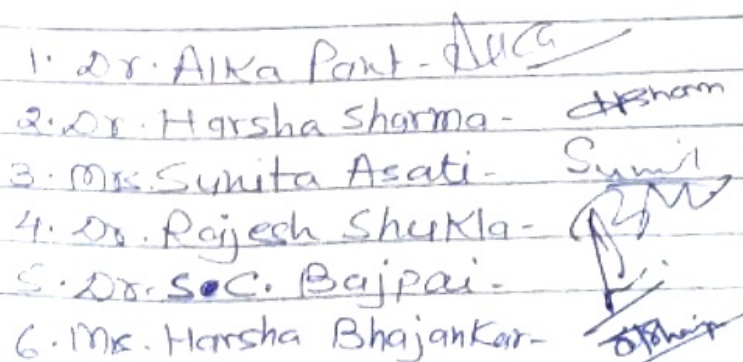 1. Dr. Alka Pant - Alka
2. Dr. Harsha Sharma - HSharm
3. Mrs. Sunita Asati - Sunil
4. Dr. Rajesh Shukla -
5. Dr. S.C. Bajpai -
6. Mrs. Harsha Bhajankar -